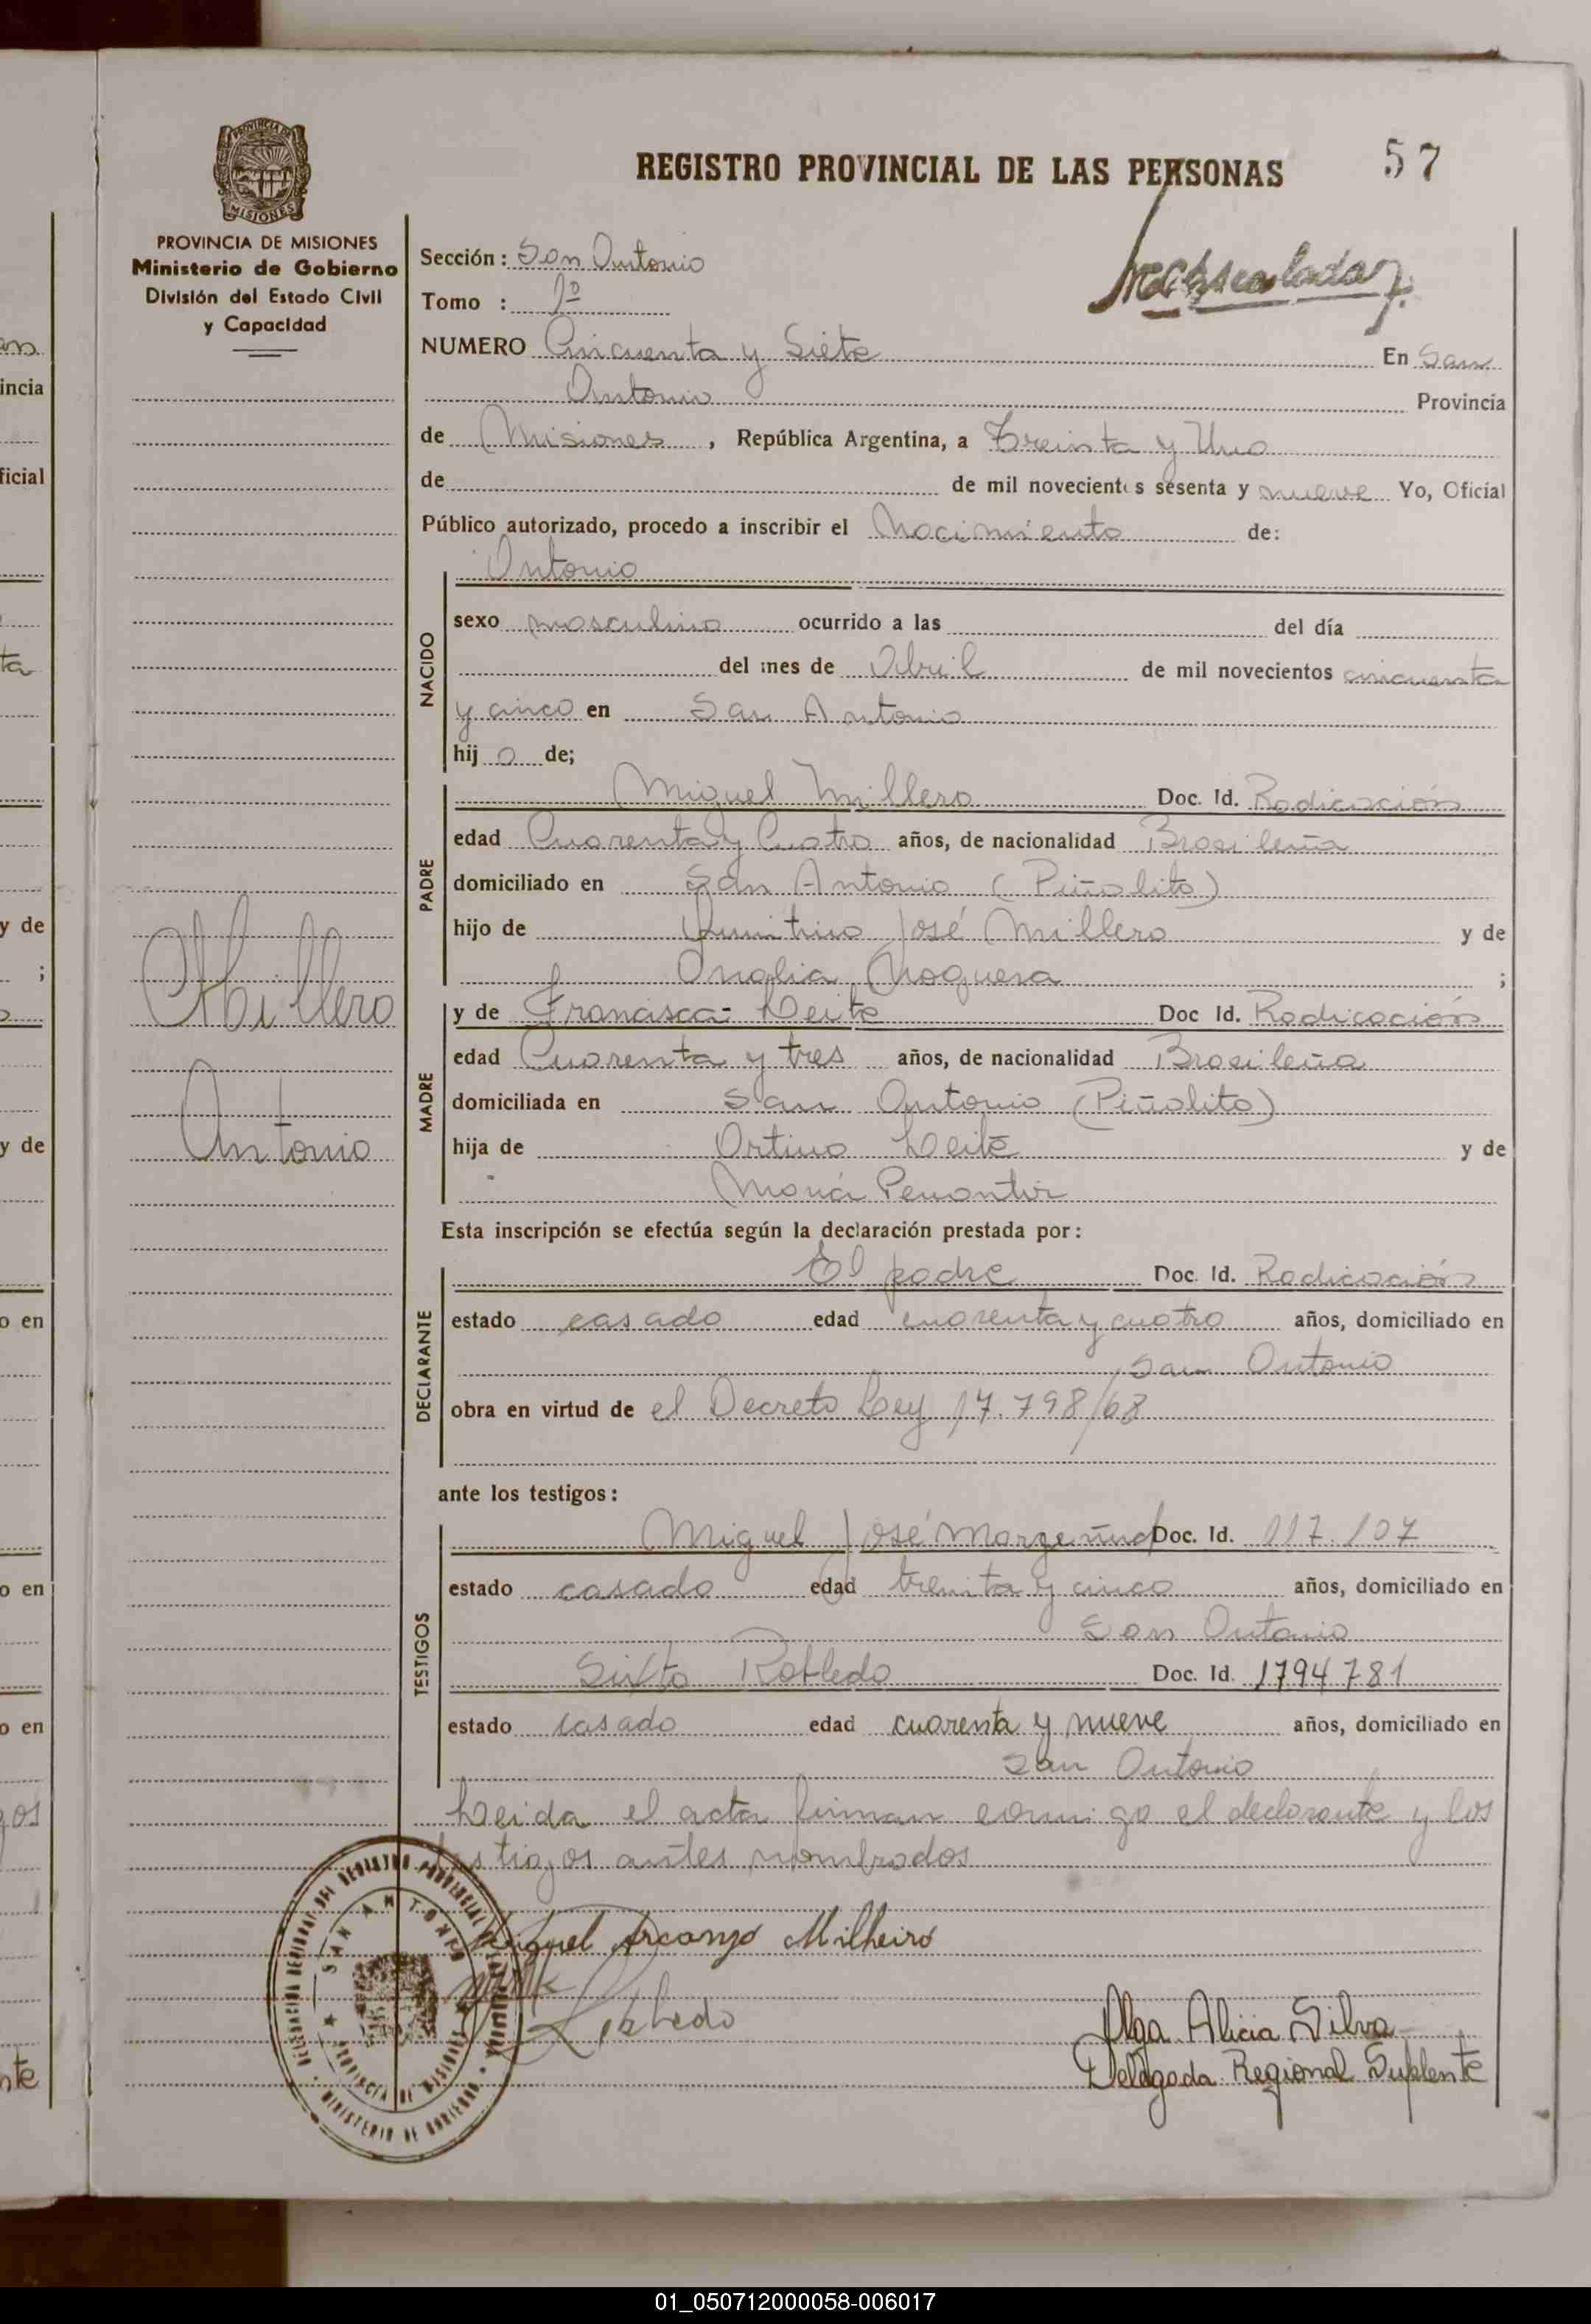 57
REGISTRO PROVINCIAL DE LAS PERSONAS
PROVINCIA DE MISIONES
Ministerio de Gobierno
División del Estado Civil
y Capacidad
Sección: San Antonio
Tomo : 1º
NUMERO Cincuenta y Siete En San
Antonio Provincia
de Misiones, República Argentina, a Treinta y Uno
de de mil novecientos sesenta y nueve Yo, Oficial
Público autorizado, procedo a inscribir el Nacimiento de:
Antonio
NACIDO
sexo masculino ocurrido a las del día
del mes de Abril de mil novecientos cincuenta
y cinco en San Antonio
hijo de;
PADRE
Miguel Millero Doc. Id. Radicación
edad Cuarenta y Cuatro años, de nacionalidad Brasileña
domiciliado en San Antonio (Piñalito)
hijo de José Millero y de
Noguera ;
MADRE
y de Francisca Leite Doc Id. Radicación
edad Cuarenta y tres años, de nacionalidad Brasileña
domiciliada en San Antonio (Piñalito)
hija de Ortino Leite y de
María
Millero
Antonio
Esta inscripción se efectúa según la declaración prestada por:
DECLARANTE
El padre Doc. Id. Radicación
estado casado edad cuarenta y cuatro años, domiciliado en
San Antonio
obra en virtud de el Decreto Ley 17.798/68
ante los testigos:
TESTIGOS
Miguel José Doc. Id. 117.107
estado casado edad treinta y cinco años, domiciliado en
San Antonio
Sixto Robledo Doc. Id. 1794781
estado casado edad cuarenta y nueve años, domiciliado en
San Antonio
Leida el acta firman conmigo el declarante y los
testigos antes nombrados
Miguel Arcanjo Milheiro
Robledo
Olga Alicia Silva
Delegada Regional Suplente
SAN ANTONIO
PROVINCIA DE MISIONES
MINISTERIO DE GOBIERNO
01_050712000058-006017